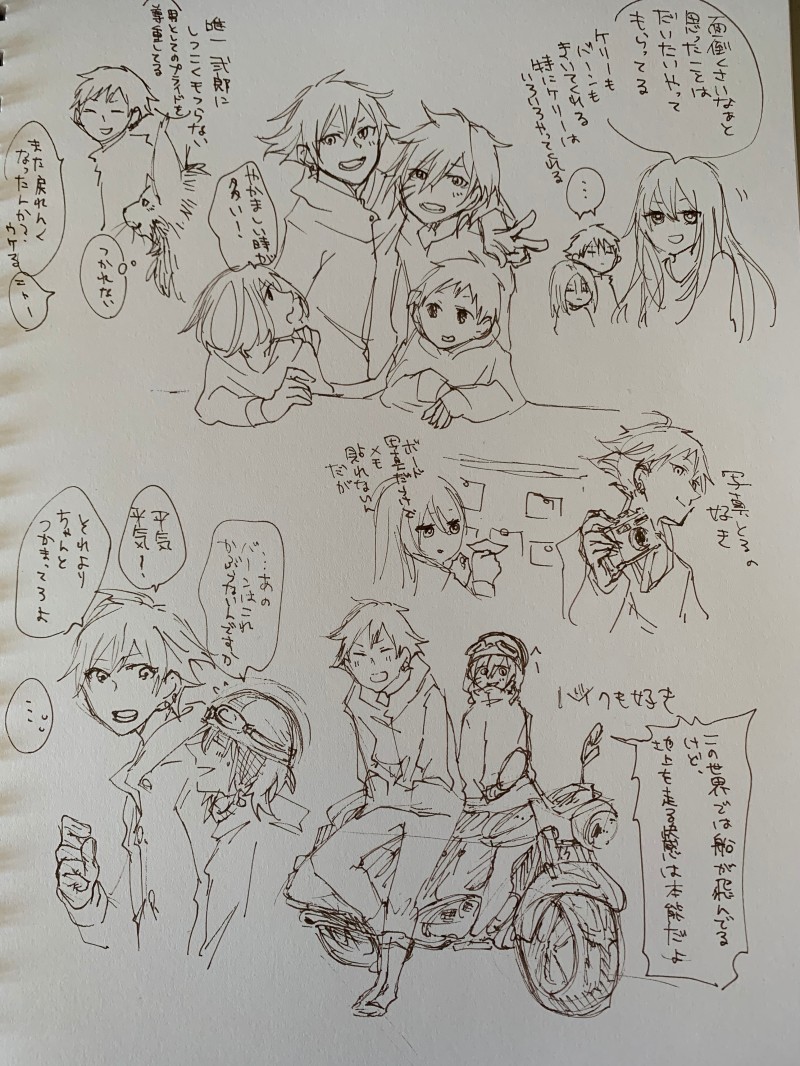 面倒くさいなぁと
思ったことは
だいたいやって
もらってる
ケリーも
バーンも
きいてくれる
特にケリーは
いろいろやってくれる
…
唯一弐郎に
しつこくもつらない
男としてのプライドを
尊重してる
また戻れんく
なったんか?
ウケる
ニャー
つかれない
やかましい時が
多い!
写真とるの
好き
ボードに
写真だらけで
メモ
貼れないん
だが
平気
平気〜
それより
ちゃんと
つかまってろよ
…あの
バーンはこれ
かぶらないんですか
…
バイクも好き
この世界では船が飛んでる
けど、
地上を走る感は本能だよ